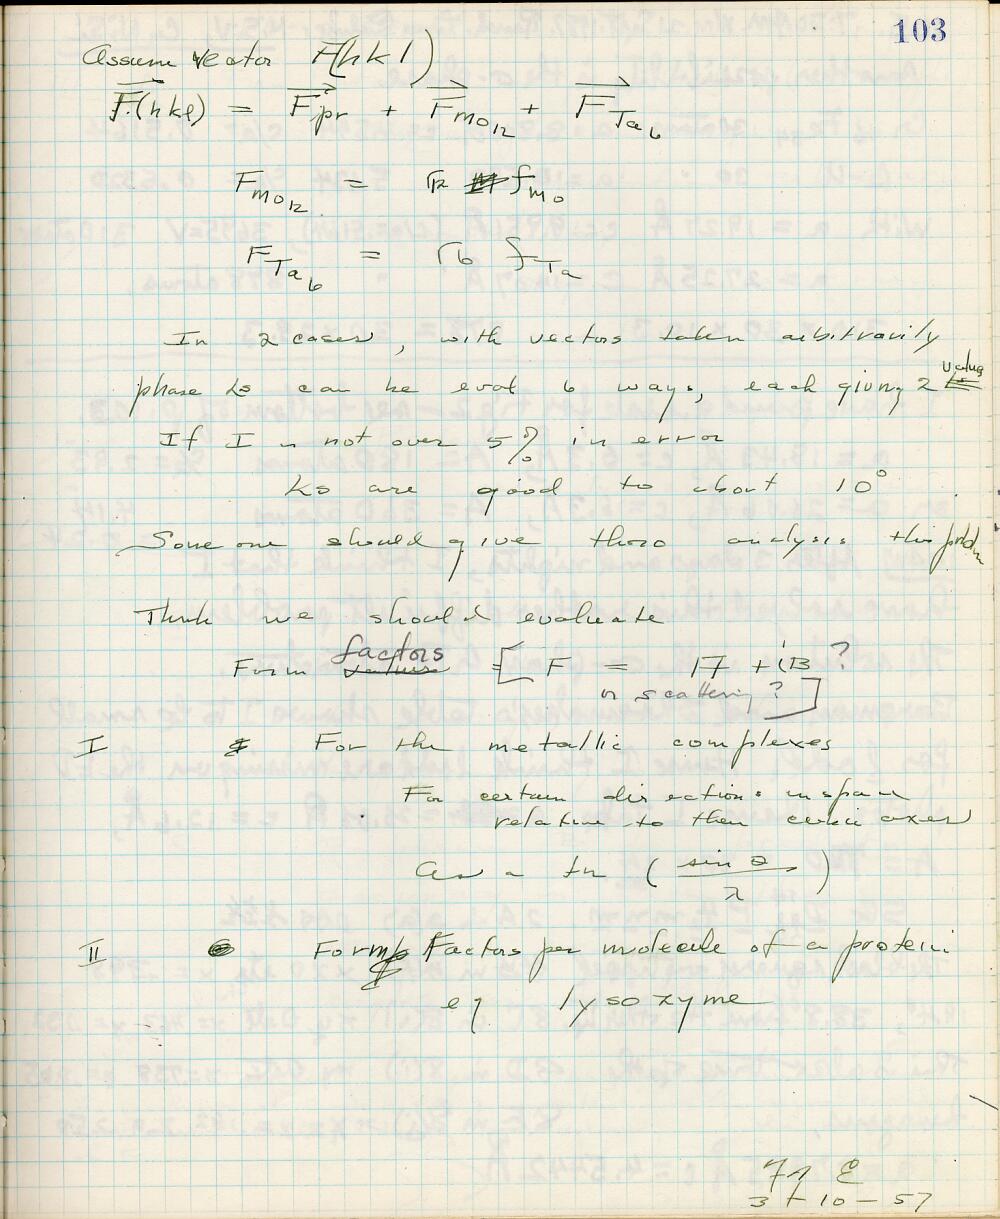 103
Assume vector F(hkl)
F(hkl) = Fpr + FMo12 + FTa6
FMo12 = 12 fMo
FTa6 = 6 fTa
In 2 cases, with vectors taken arbitrarily
phase ∠s can be eval 6 ways, each giving 2 value
If I is not over 5% in error
∠s are good to about 10°
Some one should give thoro analysis this prob
Think we should evaluate
Form factors [ F = A + iB ?
or scattering? ]
I For the metallic complexes
For certain directions in space
relative to their cubic axes
as a fn ( sin θ / λ )
II Form Factors per molecule of a protein
eg lysozyme
3 + 10 - 57